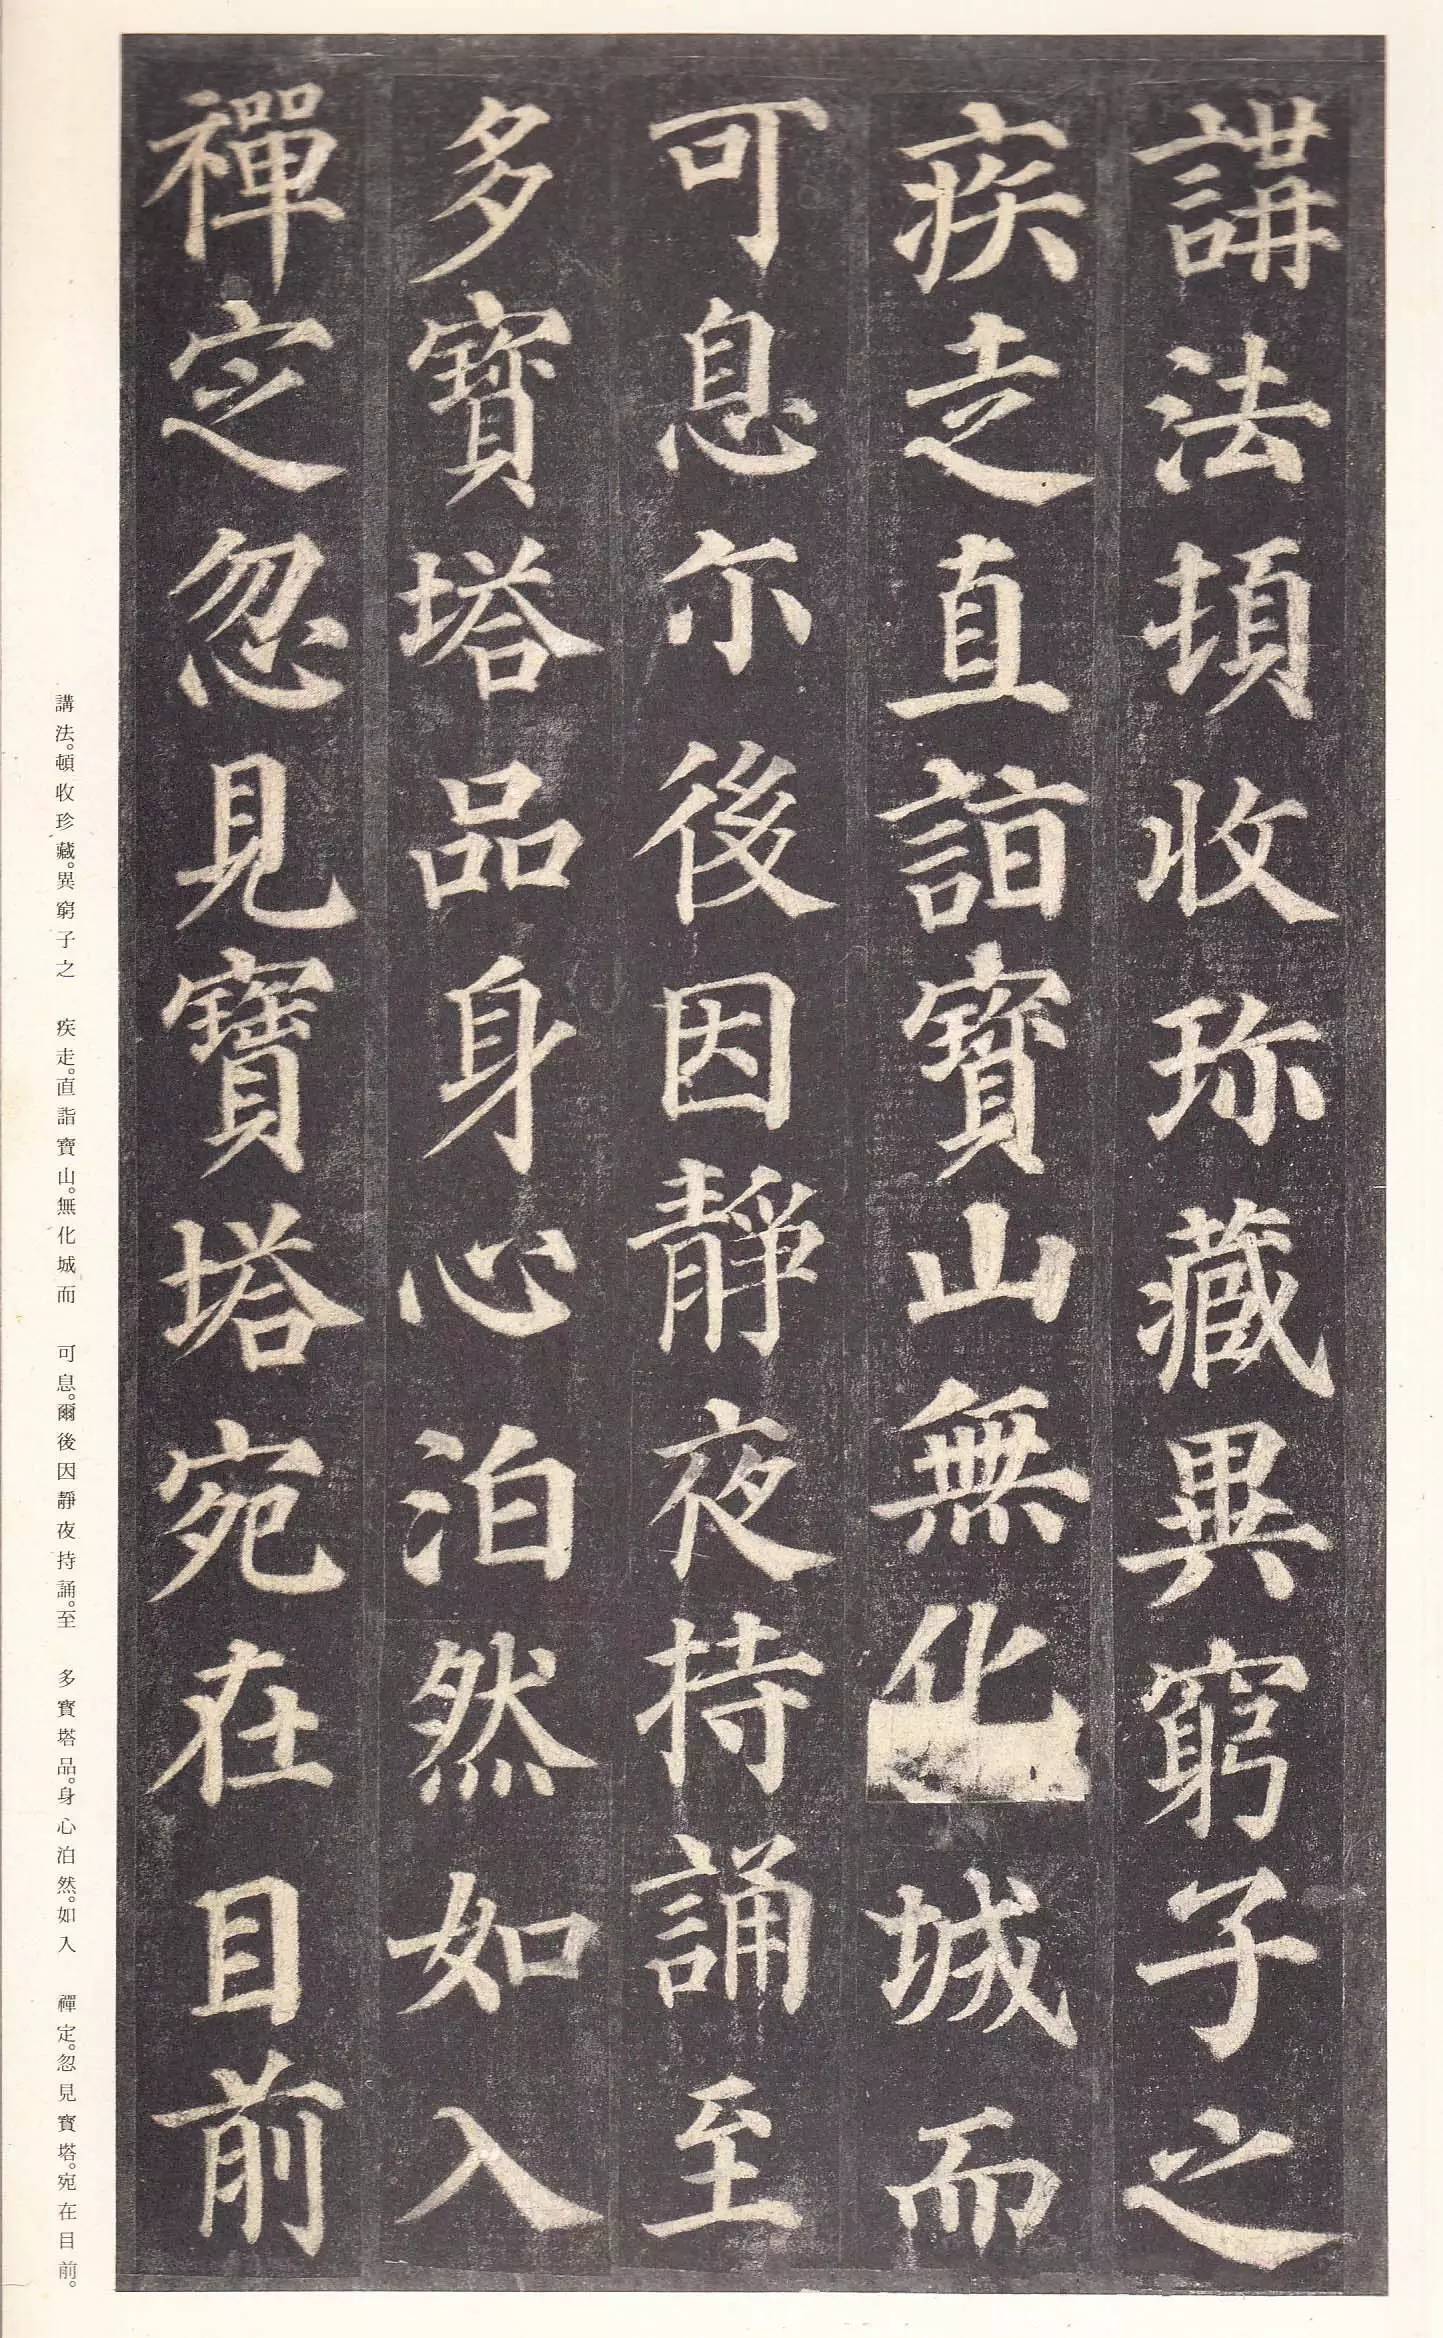 講法頓收珎藏異窮子之
疾走直詣寳山無化城而
可息尒後因靜夜持誦至
多寳塔品身心泊然如入
禪定忽見寶塔宛在目前
講法。頓收珍藏。異窮子之　疾走。直詣寶山。無化城而　可息。爾後因靜夜持誦。至　多寳塔品。身心泊然。如入　禪定。忽見寳塔。宛在目前。